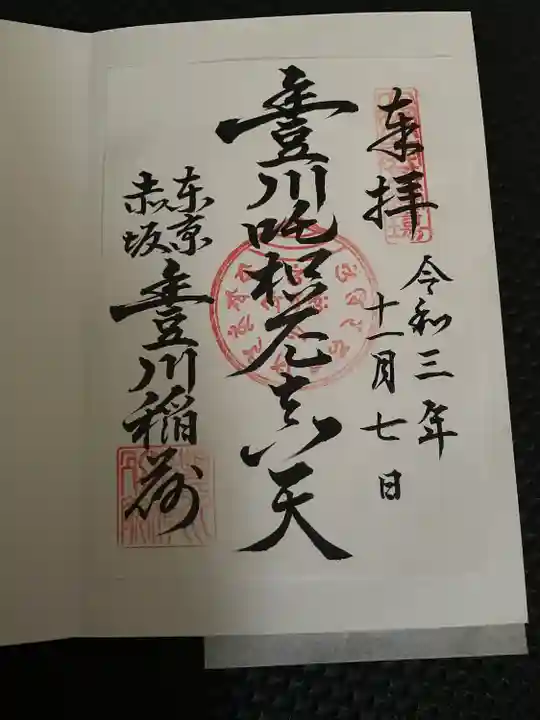 奉拝
令和三年
十一月七日
豊川吒枳尼真天
东京
赤坂
豊川稲荷